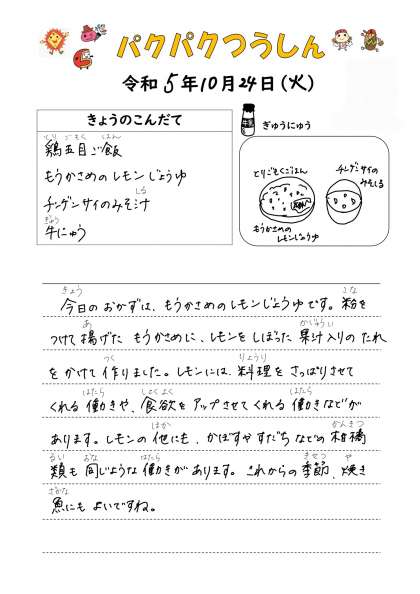 パクパクつうしん
令和5年10月24日(火)
きょうのこんだて
とり ごもく はん
鶏五目ご飯
もうかさめのレモンじょうゆ
しる
チンゲンサイのみそ汁
ぎゅう
牛にゅう
ぎゅうにゅう
とりごもくごはん
チンゲンサイの
みそしる
もうかさめの
レモンじょうゆ
きょう こな
今日のおかずは、もうかさめのレモンじょうゆです。粉を
あ かじゅうい
つけて揚げた もうかさめに、レモンをしぼった果汁入りのたれ
つく りょうり
をかけて作りました。レモンには、料理をさっぱりさせて
はたら しょくよく はたら
くれる働きや、食欲をアップさせてくれる働きなどが
ほか かんきつ
あります。レモンの他にも、かぼすやすだちなどの柑橘
るい おな はたら きせつ や
類も同じような働きがあります。これからの季節、焼き
ざかな
魚にもよいですね。